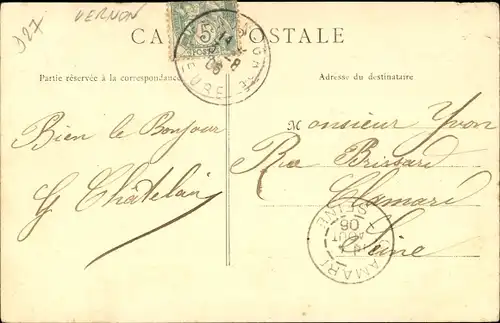 D27
VERNON
CARTE POSTALE
5
Partie réservée à la correspondance
Adresse du destinataire
Bien le Bonjour
G Châtelain
Monsieur Yvon
Rue Brissard
Clamart
Seine
CLAMART
14
AOUT
06
SEINE
EURE